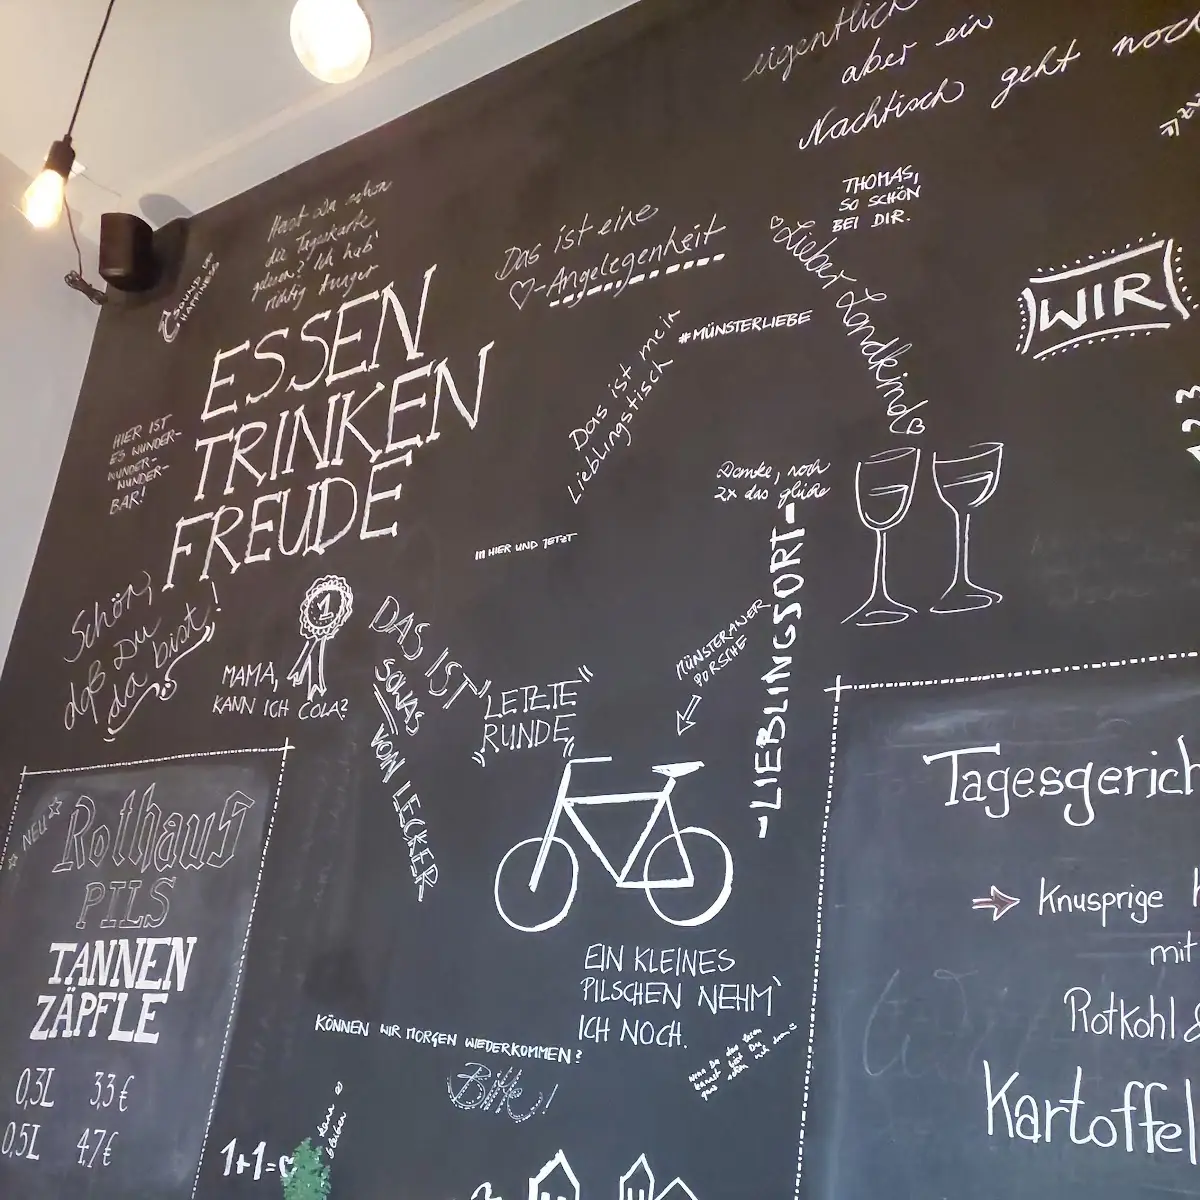 eigentlich
aber ein
Nachtisch geht noch
THOMAS,
SO SCHÖN
BEI DIR.
Hast du schon
die Tageskarte
gelesen? Ich hab'
richtig Hunger
SOUND OF
HAPPINESS
Das ist eine
♡-Angelegenheit
Lieber Landkind
WIR
#MÜNSTERLIEBE
Das ist mein
Lieblingstisch
ESSEN
TRINKEN
FREUDE
HIER IST
ES WUNDER-
WUNDER-
WUNDER-
BAR!
1 2 3
Danke, noch
2x das gleiche
IM HIER UND JETZT
-LIEBLINGSORT-
Schön,
daß Du
da bist!
1
MAMA,
KANN ICH COLA?
DAS IST
SOWAS
VON LECKER
"LETZTE"
"RUNDE"
MÜNSTERANER
PORSCHE
NEU
Rothaus
PILS
TANNEN
ZÄPFLE
0,3L 3,3 €
0,5L 4,7 €
Tagesgerich
Knusprige
mit
Rotkohl &
Kartoffel
EIN KLEINES
PILSCHEN NEHM'
ICH NOCH.
KÖNNEN WIR MORGEN WIEDERKOMMEN?
Bitte!
Wenn Du das lesen
kannst bist Du
1+1=